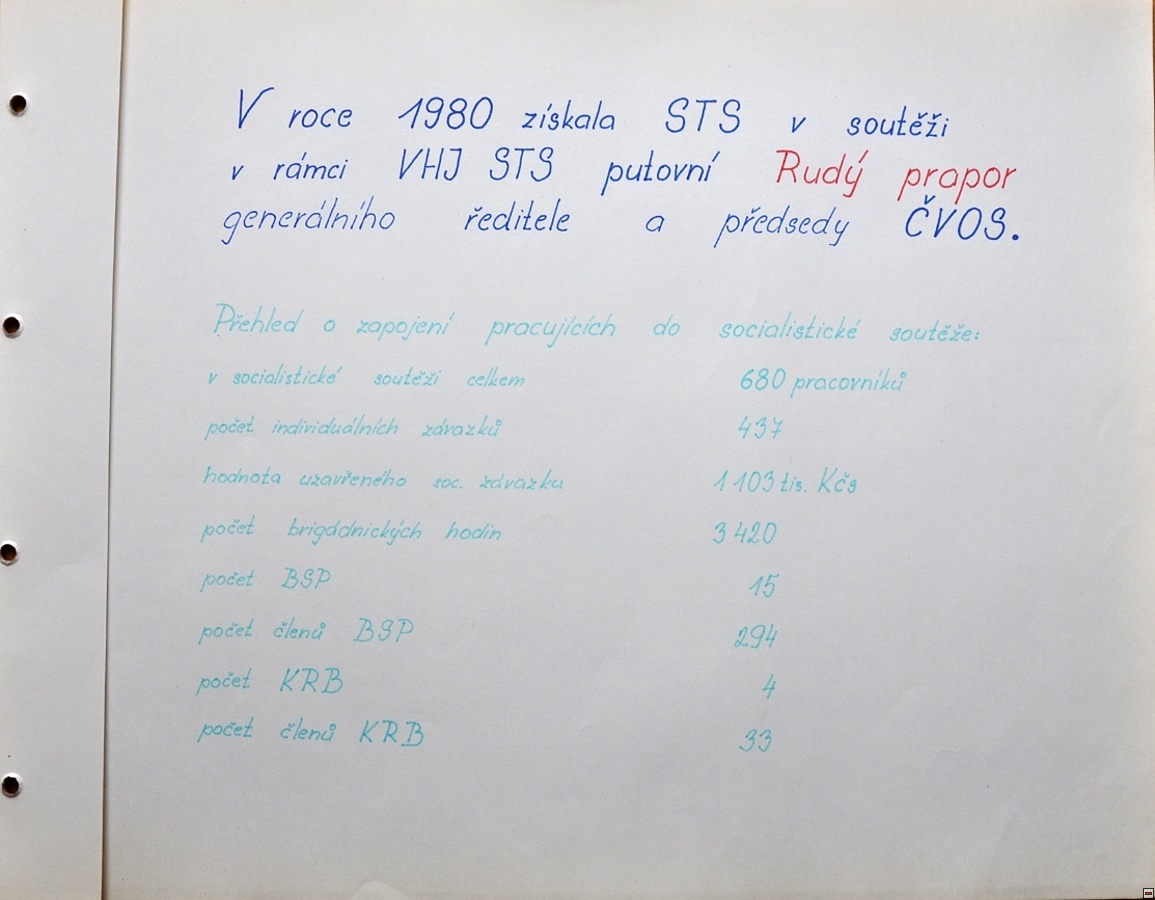 V roce 1980 získala STS v soutěži
v rámci VHJ STS putovní Rudý prapor
generálního ředitele a předsedy ČVOS.
Přehled o zapojení pracujících do socialistické soutěže:
v socialistické soutěži celkem 680 pracovníků
počet individuálních závazků 437
hodnota uzavřeného soc. závazku 1 103 tis. Kčs
počet brigádnických hodin 3 420
počet BSP 15
počet členů BSP 294
počet KRB 4
počet členů KRB 33